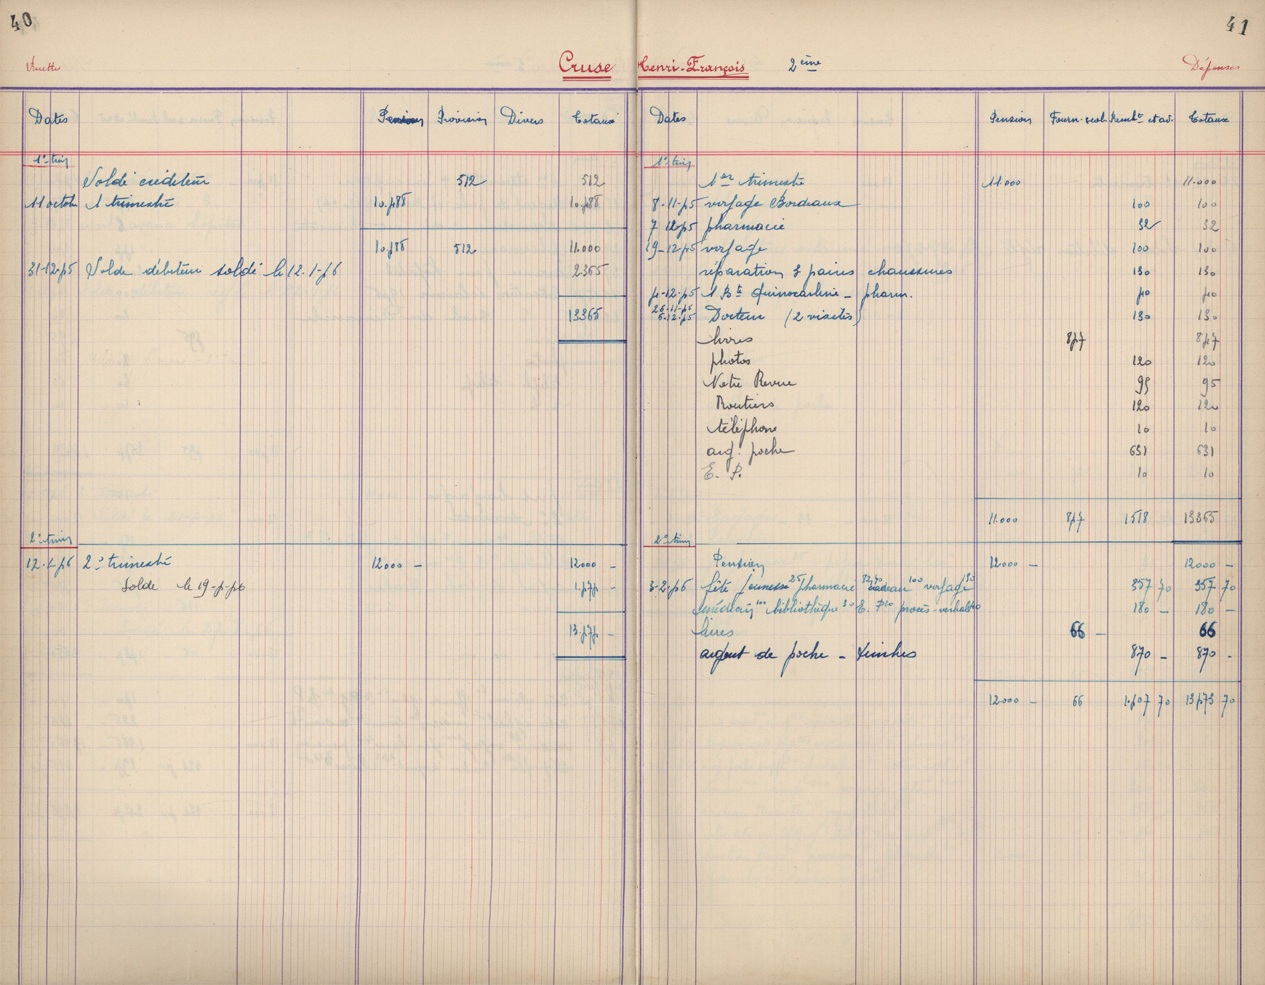 40
Recettes
Cruse
Dates Pension Provision Divers Totaux
1er trim
Solde créditeur 512 512
11 octob 1 trimestre 10.488 10.488
10.488 512 11.000
31-12-45 Solde débiteur soldé le 12.1-46 2365
13365
2e trim
12.1-46 2e trimestre 12000 - 12000 -
Solde le 19-4-46 1.474 -
13.474 -
41
Henri-François 2ème
Dépenses
Dates Pension Fourn. scol. Remb. et av. Totaux
1er trim
1er trimestre 11.000 11.000
8-11-45 voyage Bordeaux 100 100
7-12-45 pharmacie 32 32
19-12-45 voyage 100 100
réparation 3 paires chaussures 130 130
4-12-45 1 Bt Quinocarbine - pharm. 40 40
26-11-45
6-12-45 Docteur (2 visites) 130 130
livres 847 847
photos 120 120
Notre Revue 95 95
Routiers 120 120
téléphone 10 10
arg. poche 631 631
E. P. 10 10
11.000 847 1518 13365
2e trim
Pension 12000 - 12000 -
3-2-46 fête jeunesse 25 pharmacie cadeau 100 voyage 357 70 357 70
bibliothèque procès-verbal 180 - 180 -
livres 66 - 66
argent de poche - timbres 870 - 870 -
12000 - 66 1.407 70 13.473 70